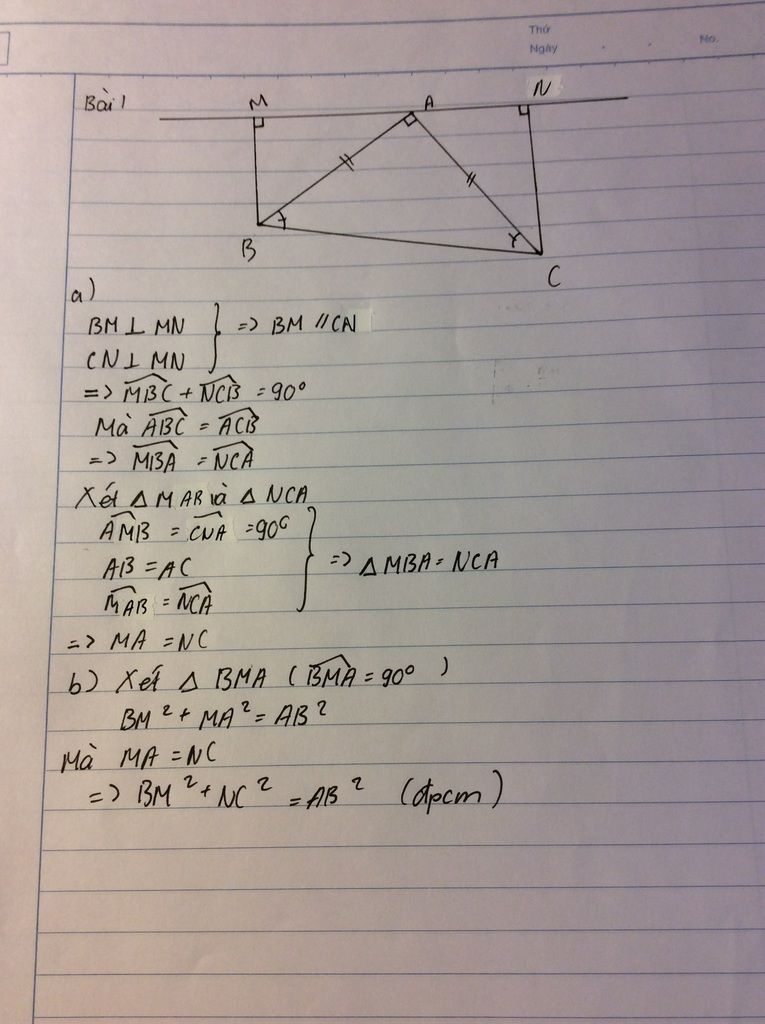 Thứ
Ngày
No.
Bài 1
M A N
B
C
a)
BM ⊥ MN
CN ⊥ MN } => BM // CN
=> MBC + NCB = 90°
Mà ABC = ACB
=> MBA = NCA
Xét Δ MAB và Δ NCA
AMB = CNA = 90°
AB = AC
MAB = NCA } => Δ MBA = NCA
=> MA = NC
b) Xét Δ BMA ( BMA = 90° )
BM² + MA² = AB²
Mà MA = NC
=> BM² + NC² = AB² (đpcm)